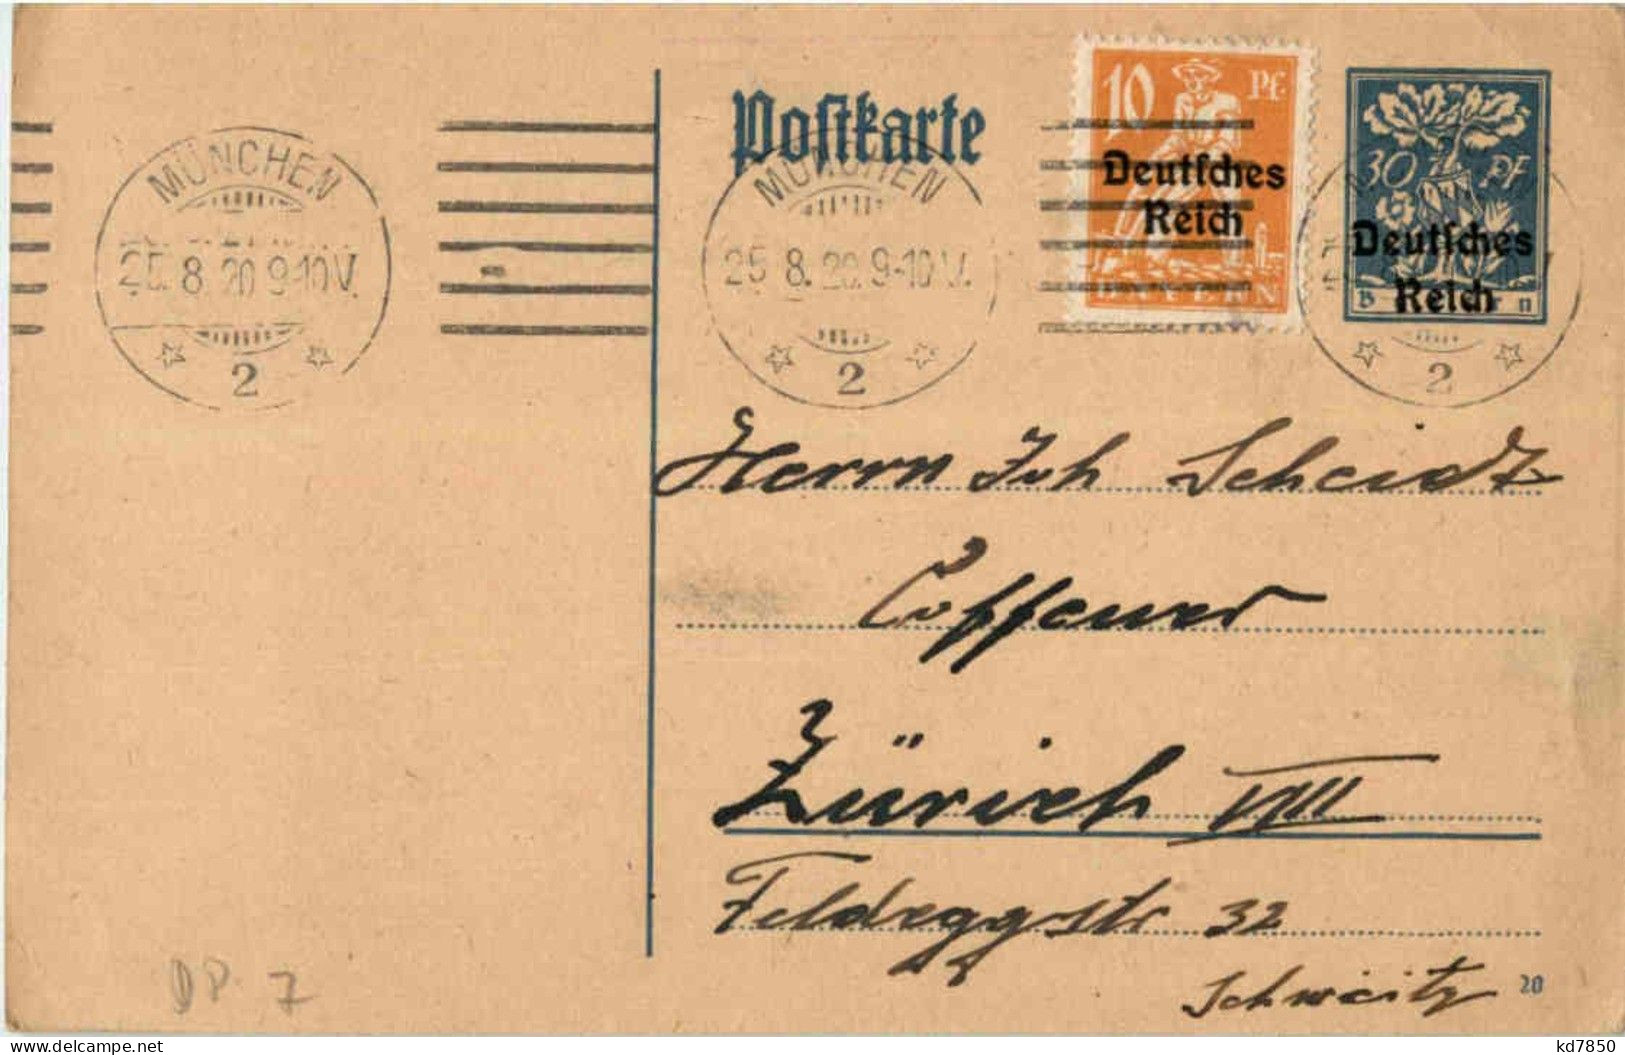 Postkarte
10 Pf.
Deutsches
Reich
BAYERN
30 Pf
Deutsches
Reich
MÜNCHEN
25. 8. 20 9-10 V.
2
MÜNCHEN
25 8. 20. 9-10 V.
2
2
Herrn Joh Scheidt
Coiffeur
Zürich VIII
Feldeggstr 32
Schweitz
20
DP. 7
kd7850